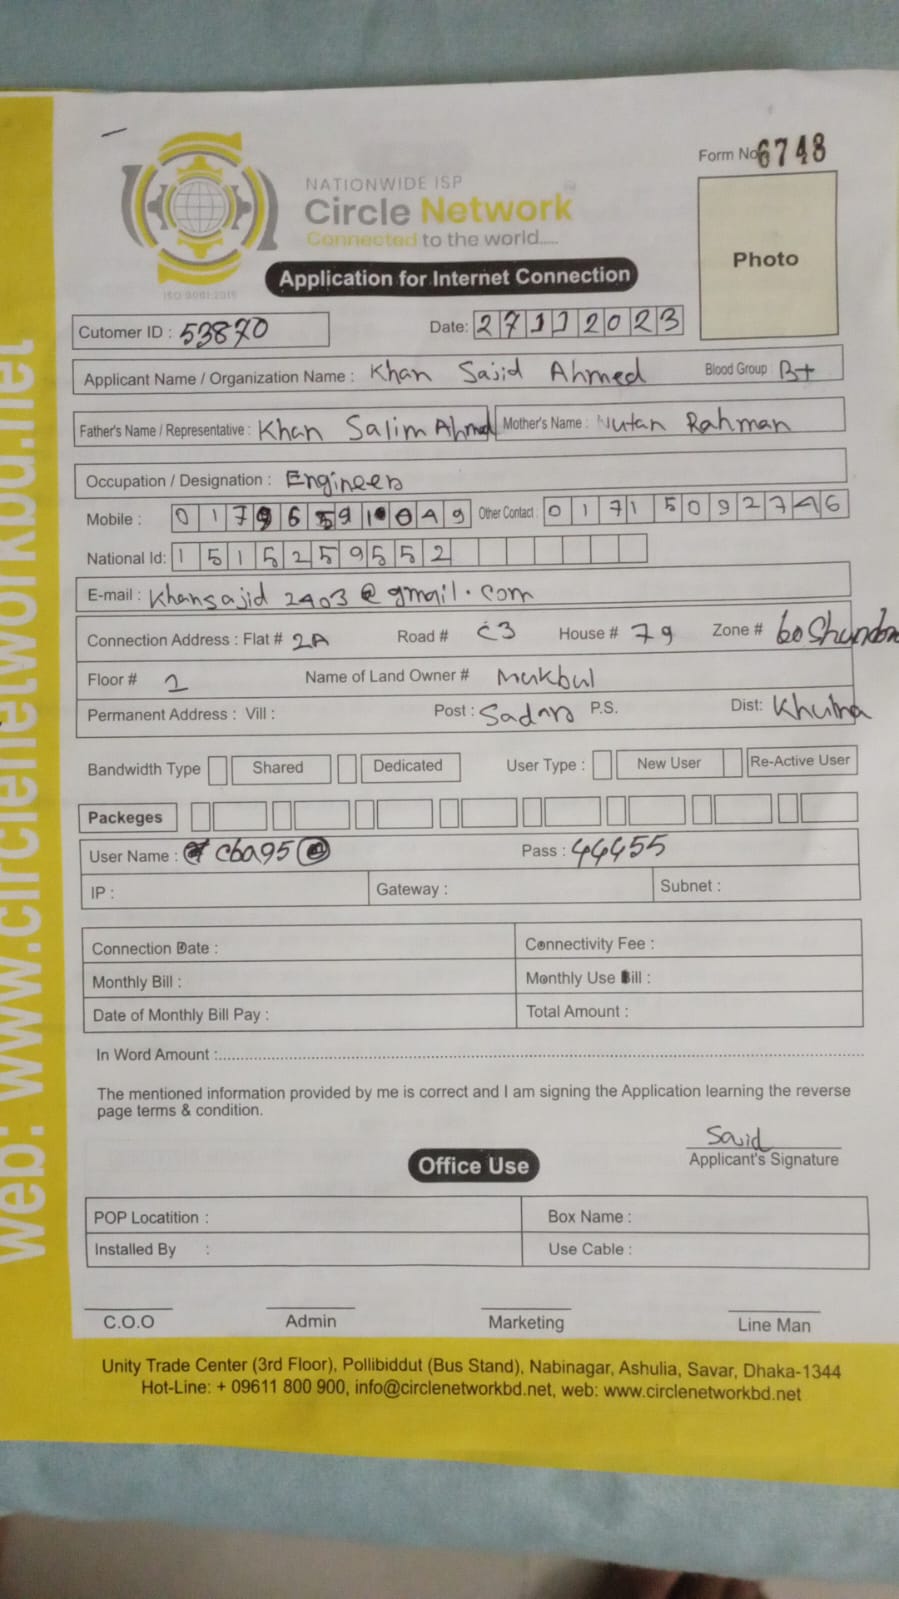 Form No 6748
NATIONWIDE ISP
Circle Network
Connected to the world.....
ISO 9001:2015
Photo
Application for Internet Connection
Cutomer ID : 53870 Date: 27112023
Applicant Name / Organization Name : Khan Sajid Ahmed Blood Group B+
Father's Name / Representative : Khan Salim Ahmed Mother's Name : Nutan Rahman
Occupation / Designation : Engineer
Mobile : Other Contact : 01715092746
National Id: 1515259552
E-mail : khansajid2403@gmail.com
Connection Address : Flat # 2A Road # C3 House # 79 Zone #
Floor # 2 Name of Land Owner # Mukbul
Permanent Address : Vill : Post : Sadar P.S. Dist: Khulna
Bandwidth Type Shared Dedicated User Type : New User Re-Active User
Packeges
User Name : cba95 Pass : 44455
IP : Gateway : Subnet :
Connection Date : Connectivity Fee :
Monthly Bill : Monthly Use Bill :
Date of Monthly Bill Pay : Total Amount :
In Word Amount :
The mentioned information provided by me is correct and I am signing the Application learning the reverse
page terms & condition.
Sajid
Applicant's Signature
Office Use
POP Locatition : Box Name :
Installed By : Use Cable :
C.O.O Admin Marketing Line Man
Unity Trade Center (3rd Floor), Pollibiddut (Bus Stand), Nabinagar, Ashulia, Savar, Dhaka-1344
Hot-Line: + 09611 800 900, info@circlenetworkbd.net, web: www.circlenetworkbd.net
web: www.circlenetworkbd.net